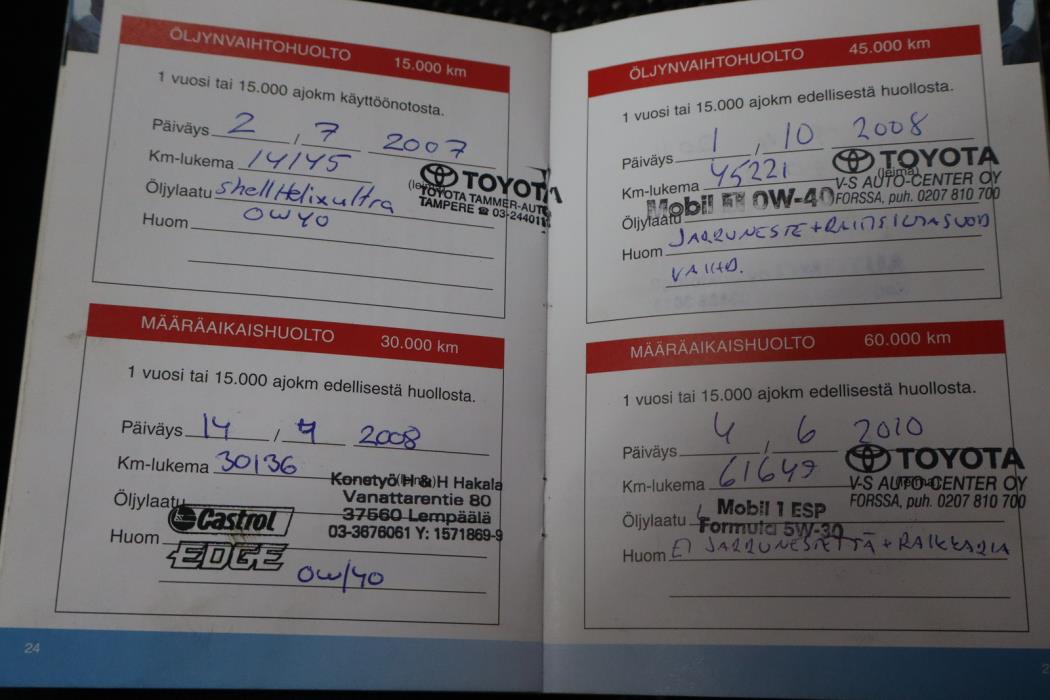 ÖLJYNVAIHTOHUOLTO 15.000 km
1 vuosi tai 15.000 ajokm käyttöönotosta.
Päiväys 2 / 7 2007
Km-lukema 14145
(leima) TOYOTA
Öljylaatu Shell Helix ultra
TOYOTA TAMMER-AUTO
TAMPERE ☎ 03-244011
Huom 0W40
MÄÄRÄAIKAISHUOLTO 30.000 km
1 vuosi tai 15.000 ajokm edellisestä huollosta.
Päiväys 14 / 4 2008
Km-lukema 30136
(leima)
Konetyö H & H Hakala
Vanattarentie 80
37560 Lempäälä
03-3676061 Y: 1571869-9
Öljylaatu Castrol
Huom EDGE
0W/40
24
ÖLJYNVAIHTOHUOLTO 45.000 km
1 vuosi tai 15.000 ajokm edellisestä huollosta.
Päiväys 1 / 10 2008
Km-lukema 45221
TOYOTA
(leima)
V-S AUTO-CENTER OY
FORSSA, puh. 0207 810 700
Öljylaatu Mobil 0W-40
Huom JARRUNESTE + RAITISILMASUOD
VAIHD.
MÄÄRÄAIKAISHUOLTO 60.000 km
1 vuosi tai 15.000 ajokm edellisestä huollosta.
Päiväys 4 / 6 2010
Km-lukema 61649
TOYOTA
(leima)
V-S AUTO-CENTER OY
FORSSA, puh. 0207 810 700
Öljylaatu Mobil 1 ESP
Formula 5W-30
Huom EI JARRUNESTETTÄ + RAIKKARIA